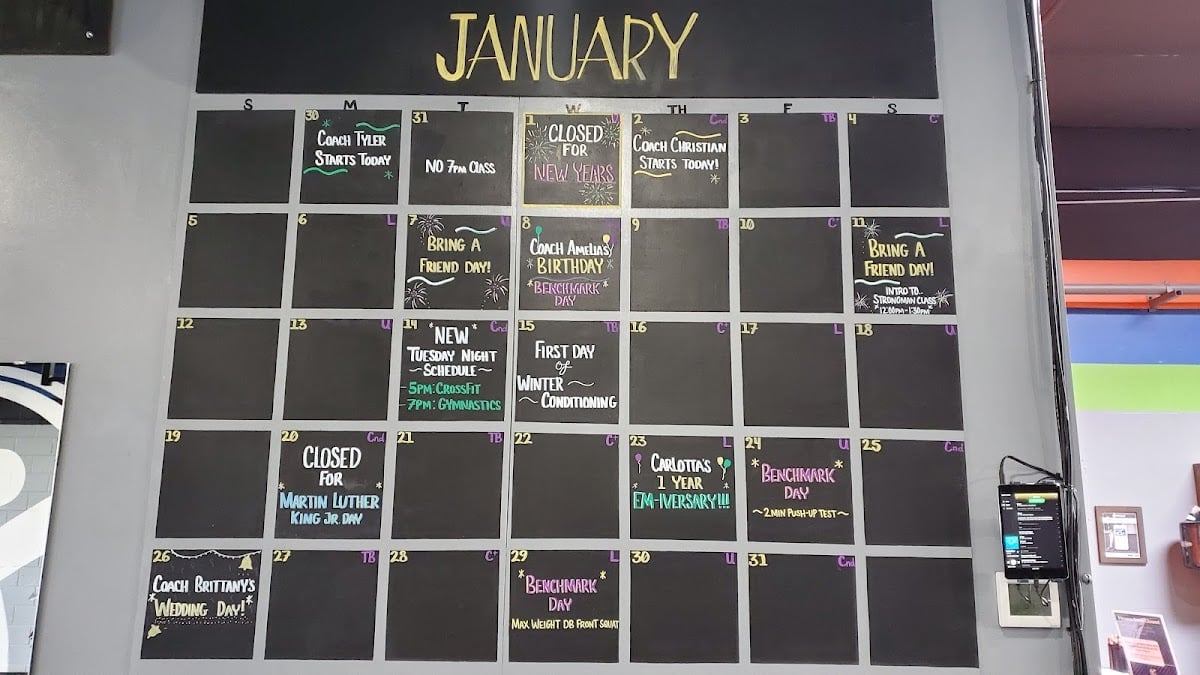 JANUARY
S M T W TH F S
30
COACH TYLER
STARTS TODAY
31
NO 7PM CLASS
1 U
CLOSED
FOR
NEW YEARS
2 Cnd
COACH CHRISTIAN
STARTS TODAY!
3 TB
4 C+
5
6 L
7 U
BRING A
FRIEND DAY!
8
COACH AMELIA'S
BIRTHDAY
BENCHMARK
DAY
9 TB
10 C+
11 L
BRING A
FRIEND DAY!
INTRO TO..
STRONGMAN CLASS
*12:00PM-1:30PM*
12
13 U
14 Cnd
*NEW*
TUESDAY NIGHT
~SCHEDULE~
-5PM: CROSSFIT
-7PM: GYMNASTICS
15 TB
FIRST DAY
of
WINTER
CONDITIONING
16 C+
17 L
18 U
19
20 Cnd
CLOSED
FOR
MARTIN LUTHER
KING JR. DAY
21 TB
22 C+
23 L
CARLOTTA'S
1 YEAR
EM-IVERSARY!!!
24 U
BENCHMARK
DAY
~2 MIN PUSH-UP TEST~
25 Cnd
26
COACH BRITTANY'S
WEDDING DAY!
27 TB
28 C+
29 L
BENCHMARK
DAY
MAX WEIGHT DB FRONT SQUAT
30 U
31 Cnd